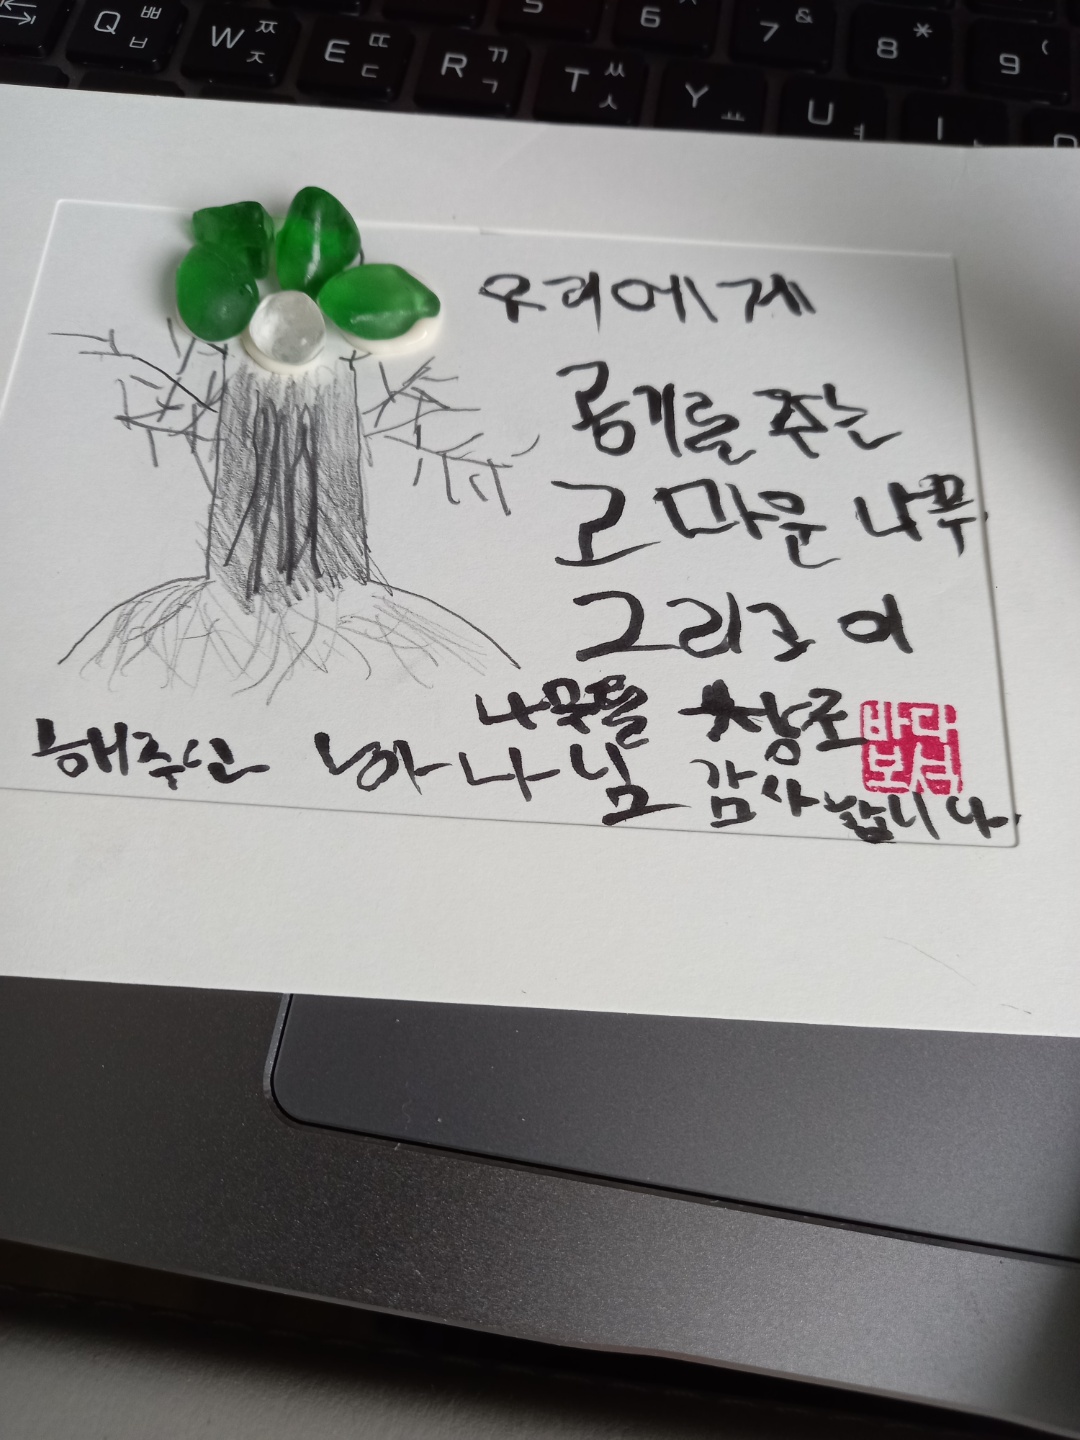 Q ㅃ ㅂ W ㅉ ㅈ E ㄸ ㄷ R ㄲ ㄱ T ㅆ ㅅ Y ㅛ U ㅕ I
5 6 7 & 8 * 9 (
우리에게
공기를 주는
고마운 나무
그리고 이
나무를 창조
해주신 하나님 감사합니다.
바다
보석